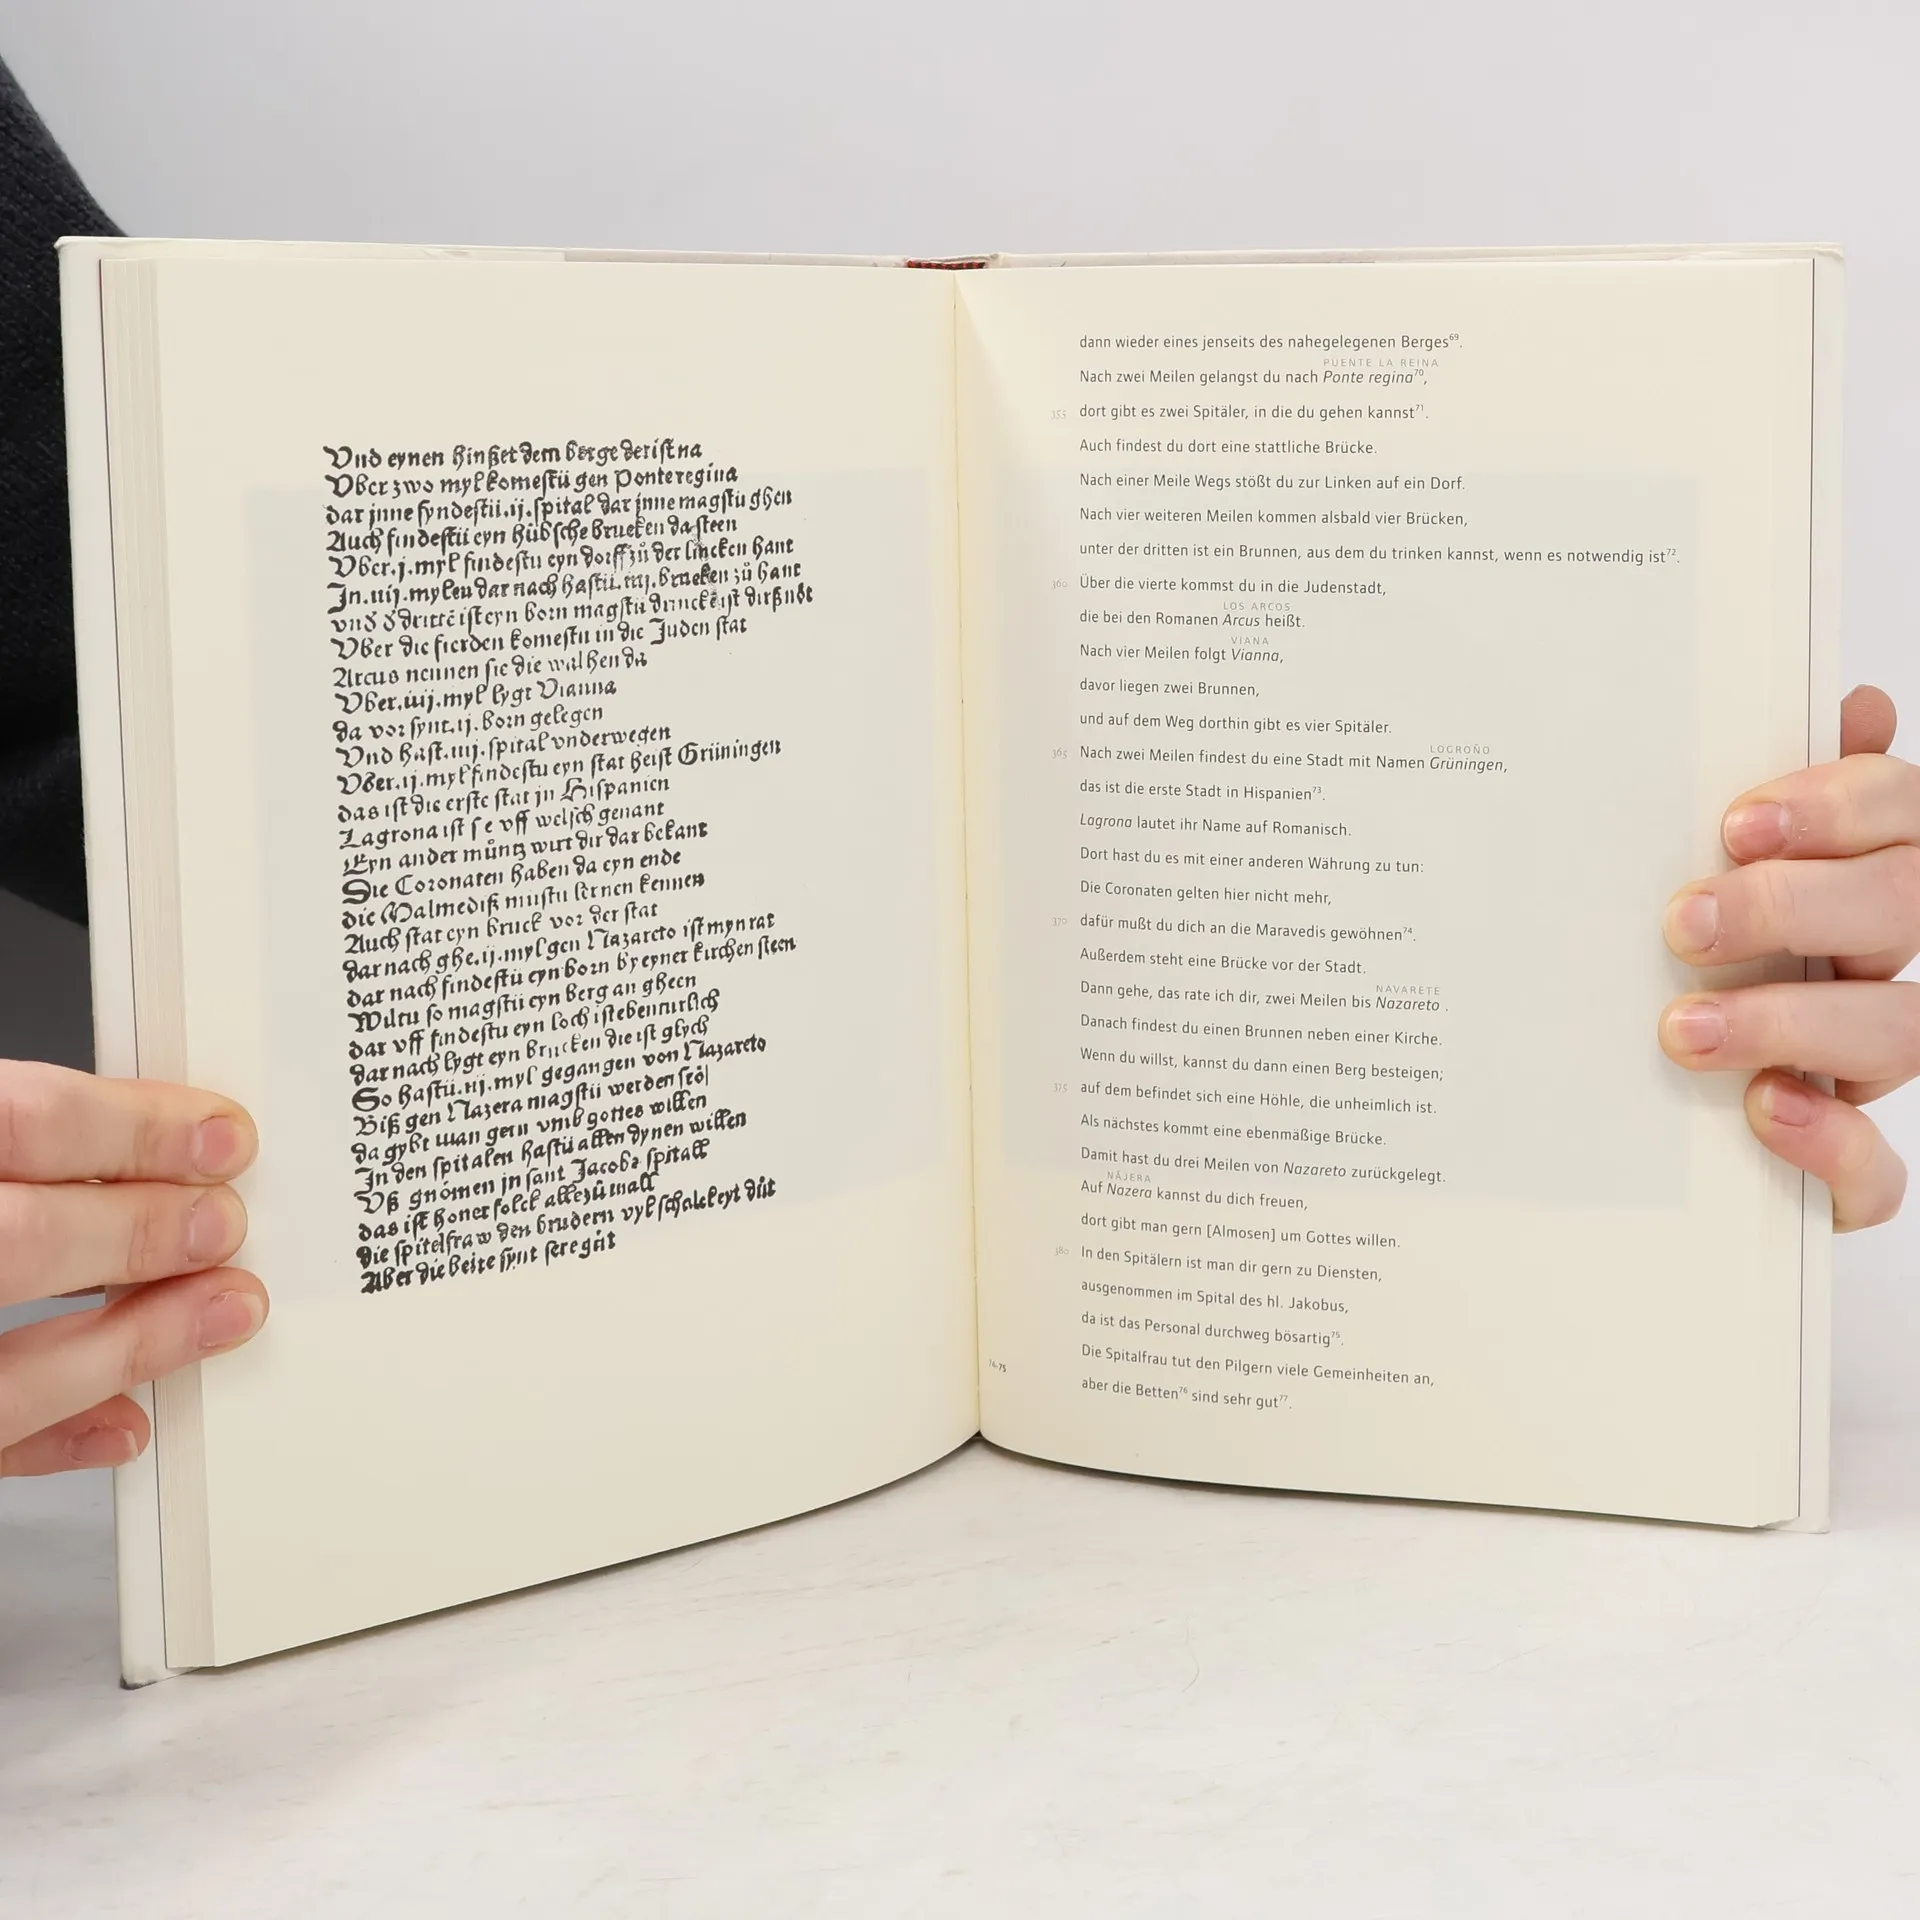 Vnd eynen hinßet dem berge derist na
Vber zwo myl komestu gen Ponteregina
dar jnne fyndestu.ij.spital dar jnne magstu ghen
Auch findestu eyn hübsche brucken da steen
Vber.j.myl findestu eyn dorff zů der lincken hant
In.iiij.mylen dar nach hastu.iiij.brucken zů hant
vnd d dritte ist eyn born magstu drincke ist dirß nöt
Vber die fierden komestu in die Juden stat
Arcus nennen sie die walhen da
Vber.iiij.myl lygt Vianna
da vor synt.ij.born gelegen
Vnd hast.iiij.spital vnderwegen
Vber.ij.myl findestu eyn stat heist Grüningen
das ist die erste stat jn Hispanien
Lagrona ist s e vff welsch genant
Eyn ander můntz wirt dir dar bekant
Die Coronaten haben da eyn ende
die Malmediß mustu lernen kennen
Auch stat eyn bruck vor der stat
dar nach ghe.ij.myl gen Nazareto ist myn rat
dar nach findestu eyn born by eyner kirchen steen
Wiltu so magstu eyn berg an gheen
dar vff findestu eyn loch ist ebenturlich
dar nach lygt eyn brucken die ist glych
So hastu.iij.myl gegangen von Nazareto
Biß gen Nazera magstu werden frö
da gybt man gern vmb gottes willen
In den spitalen hastu allen dynen willen
Vß gnömen jn sant Jacobs spitall
das ist honer folck allezů mall
die spitelfraw den brudern vyl schalckeyt důt
Aber die beite synt sere gůt
dann wieder eines jenseits des nahegelegenen Berges⁶⁹.
PUENTE LA REINA
Nach zwei Meilen gelangst du nach Ponte regina⁷⁰,
355 dort gibt es zwei Spitäler, in die du gehen kannst⁷¹.
Auch findest du dort eine stattliche Brücke.
Nach einer Meile Wegs stößt du zur Linken auf ein Dorf.
Nach vier weiteren Meilen kommen alsbald vier Brücken,
unter der dritten ist ein Brunnen, aus dem du trinken kannst, wenn es notwendig ist⁷².
360 Über die vierte kommst du in die Judenstadt,
LOS ARCOS
die bei den Romanen Arcus heißt.
VIANA
Nach vier Meilen folgt Vianna,
davor liegen zwei Brunnen,
und auf dem Weg dorthin gibt es vier Spitäler.
LOGROÑO
365 Nach zwei Meilen findest du eine Stadt mit Namen Grüningen,
das ist die erste Stadt in Hispanien⁷³.
Lagrona lautet ihr Name auf Romanisch.
Dort hast du es mit einer anderen Währung zu tun:
Die Coronaten gelten hier nicht mehr,
370 dafür mußt du dich an die Maravedis gewöhnen⁷⁴.
Außerdem steht eine Brücke vor der Stadt.
NAVARETE
Dann gehe, das rate ich dir, zwei Meilen bis Nazareto .
Danach findest du einen Brunnen neben einer Kirche.
Wenn du willst, kannst du dann einen Berg besteigen;
375 auf dem befindet sich eine Höhle, die unheimlich ist.
Als nächstes kommt eine ebenmäßige Brücke.
Damit hast du drei Meilen von Nazareto zurückgelegt.
NÁJERA
Auf Nazera kannst du dich freuen,
dort gibt man gern [Almosen] um Gottes willen.
380 In den Spitälern ist man dir gern zu Diensten,
ausgenommen im Spital des hl. Jakobus,
da ist das Personal durchweg bösartig⁷⁵.
Die Spitalfrau tut den Pilgern viele Gemeinheiten an,
aber die Betten⁷⁶ sind sehr gut⁷⁷.
74-75